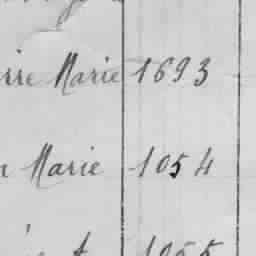 Marie 1693
Marie 1054
1055